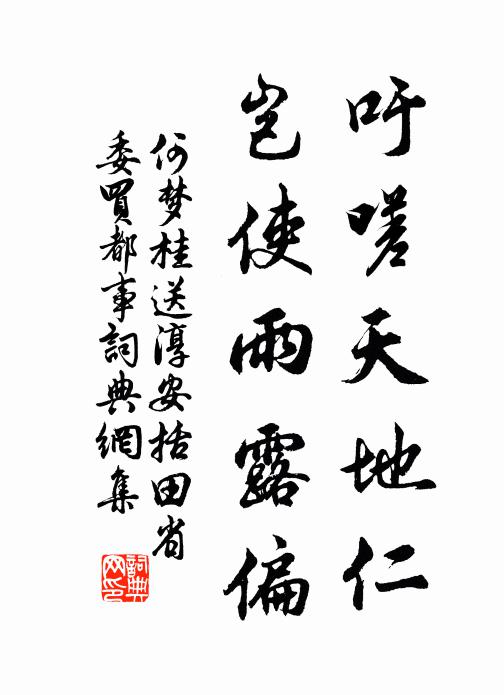 吁嗟天地仁
豈使雨露偏
何梦桂送淳安括田省
委買都事詞典網集
詞典
网印